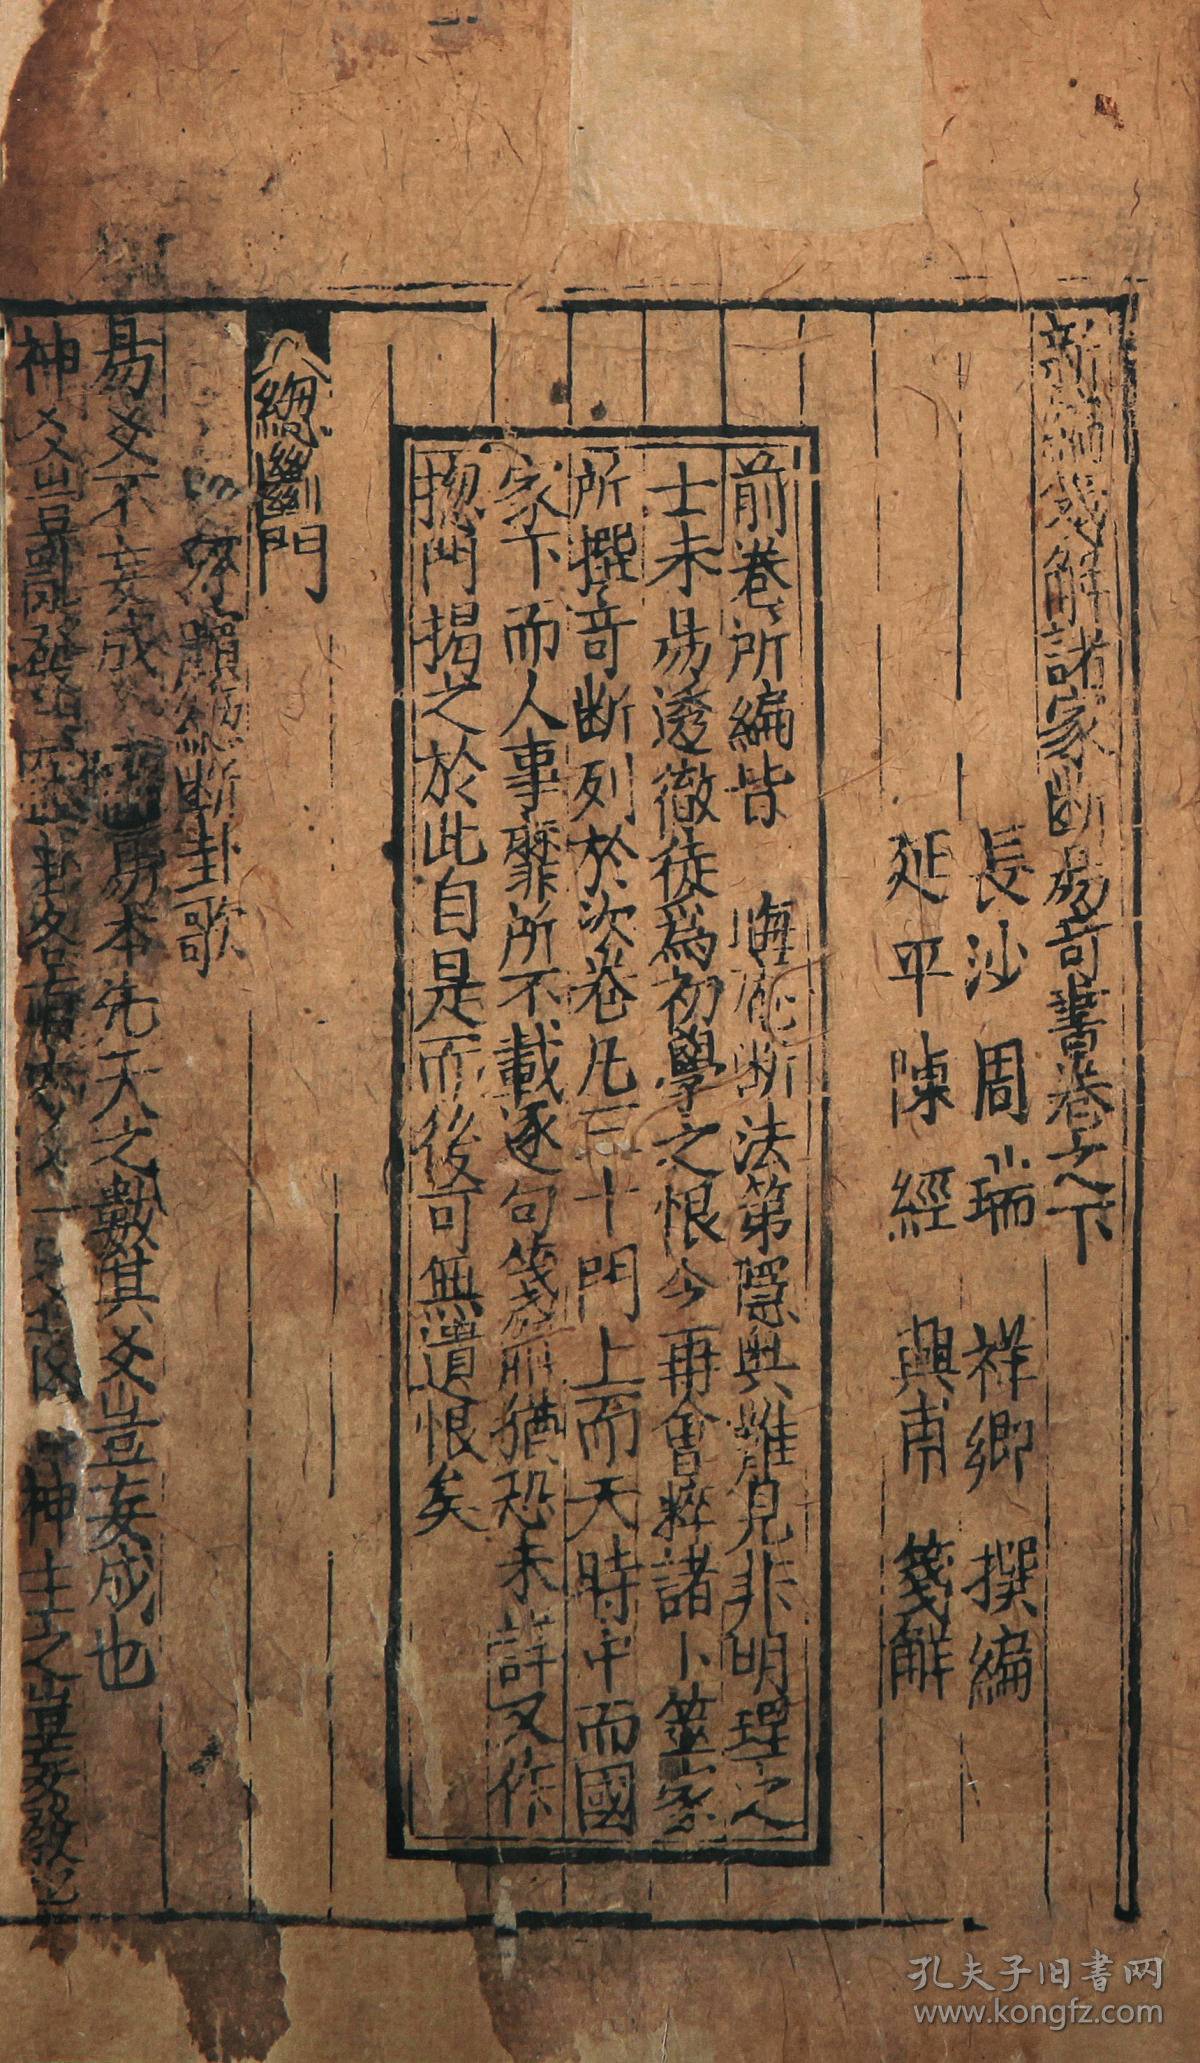 新編箋解諸家斷易奇書卷之下
長沙周瑞祥卿撰編
延平陳經興甫箋解
前卷所編皆晦菴斷法第隱奧難見非明理之
士未易透徹徒為初學之恨今再會粹諸卜筮家
所撰竒断列於次卷凡三十門上而天時中而國
家下而人事靡所不載逐句箋解猶恐未詳又作
揔門揭之於此自是而後可無遺恨矣
總斷門
斷卦歌
易爻不妄成 易本先天之數其爻岂妄成也
神爻岂亂發 神主之岂妄發也
孔夫子旧書网
www.kongfz.com